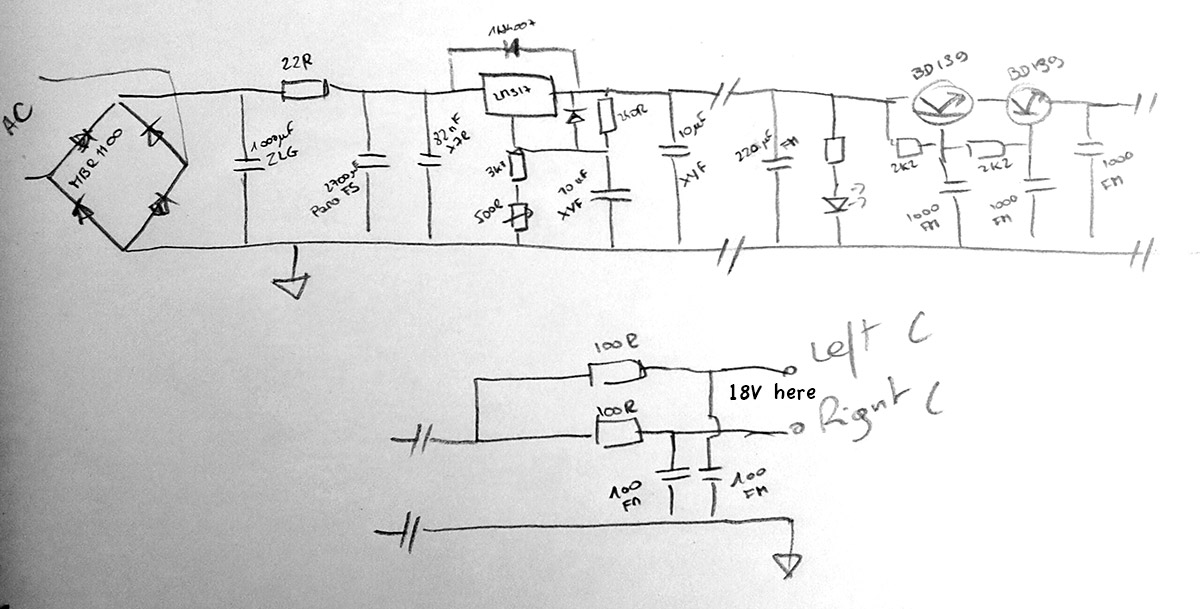 AC
MBR 1100
1000µF
ZLG
22R
2700µF
Pana FS
82nF
X7R
1N4007
LM317
3k3
500R
240R
10µF
XYF
10µF
XYF
220µF
FM
BD139
BD139
2K2
2K2
1000
FM
1000
FM
1000
FM
100R
Left C
18V here
100R
Right C
100
FM
100
FM